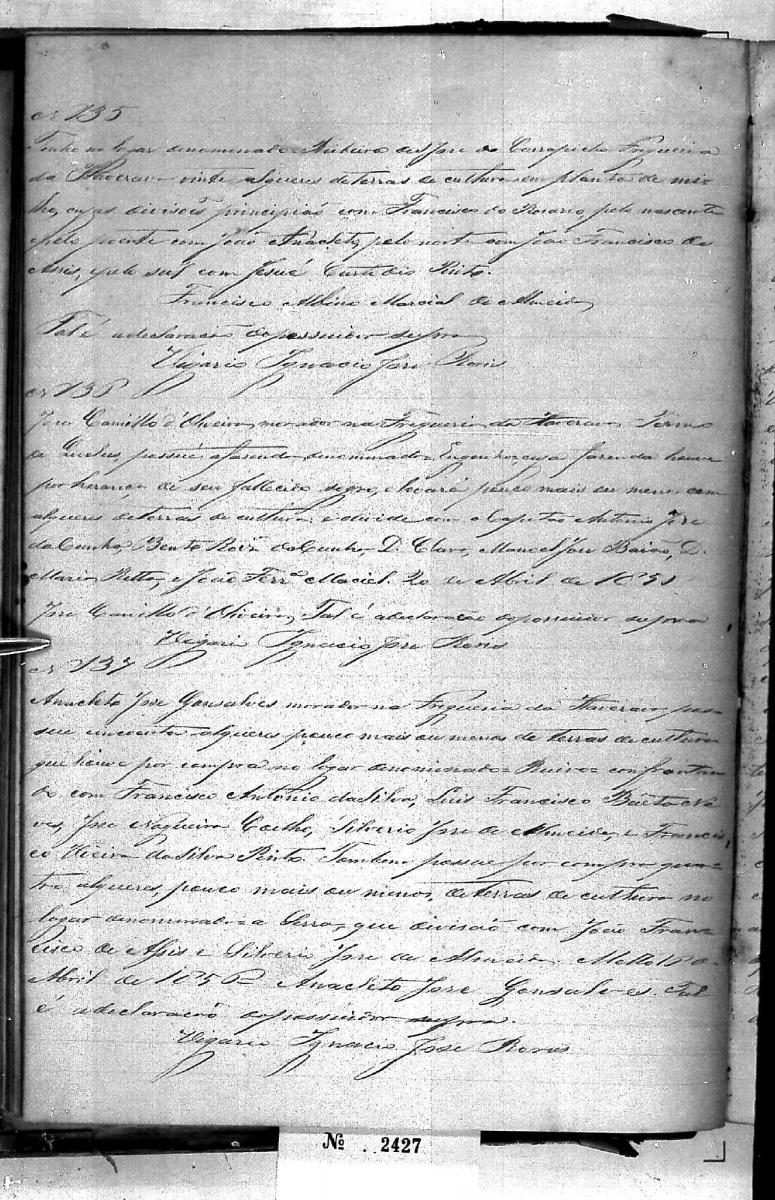 N 135
Tenho no lugar denominado Ribeiro de José do Carrapicho Freguezia
da Itaverava vinte alqueres de terras de cultura em planta de mi-
lho, cujas divisões principiaõ com Francisco do Rosario, pelo nascente
e pelo poente com João Anacleto, pelo norte com João Francisco de
Assis, e pelo sul com Josué Custodio Pinto.
Francisco Albino Marcial de Almeida
Tal é a declaracaõ do possuidor supra
Vigario Ignacio José Roris
N 136
José Camillo d'Oliveira, morador na Freguezia da Itaverava Termo
de Queluz, possué a fazenda denominada Engenho, cuja fazenda houve
por herança de seu fallecido sogro, e levará pouco mais ou menos cem
alqueres de terras de cultura, e divide com o Capitão Antonio José
da Cunha, Bento Roiz da Cunha, D. Clara, Manoel José Baião, D.
Maria Ritta, e João Ferrª Maciel. 20 de Abril de 185
José Camillo d'Oliveira, Tal é a declaração do possuidor supra
Vigario Ignacio José Roris
N 137
Anacleto José Gonsalves morador na Freguezia da Itaverava pos-
sue cincoenta alqueres pouco mais ou menos de terras de cultura
que houve por compra no lugar denominado = Ruivo = confrontan-
do com Francisco Antônio da Silva, Luis Francisco Baêta Ne-
ves, José Nogueira Coelho, Silverio José de Almeida, e Francis-
co Vieira da Silva Pinto. Tambem possue por compra qua-
tro alqueres, pouco mais ou menos, de terras de cultura no
lugar denominado = a Serra, que divisão com João Fran-
cisco de Assis e Silverio José de Almeida. de
Abril de 1856 = Anacleto José Gonsalves. Tal
é a declaracaõ do possuidor supra.
Vigario Ignacio José Roris
Nº 2427